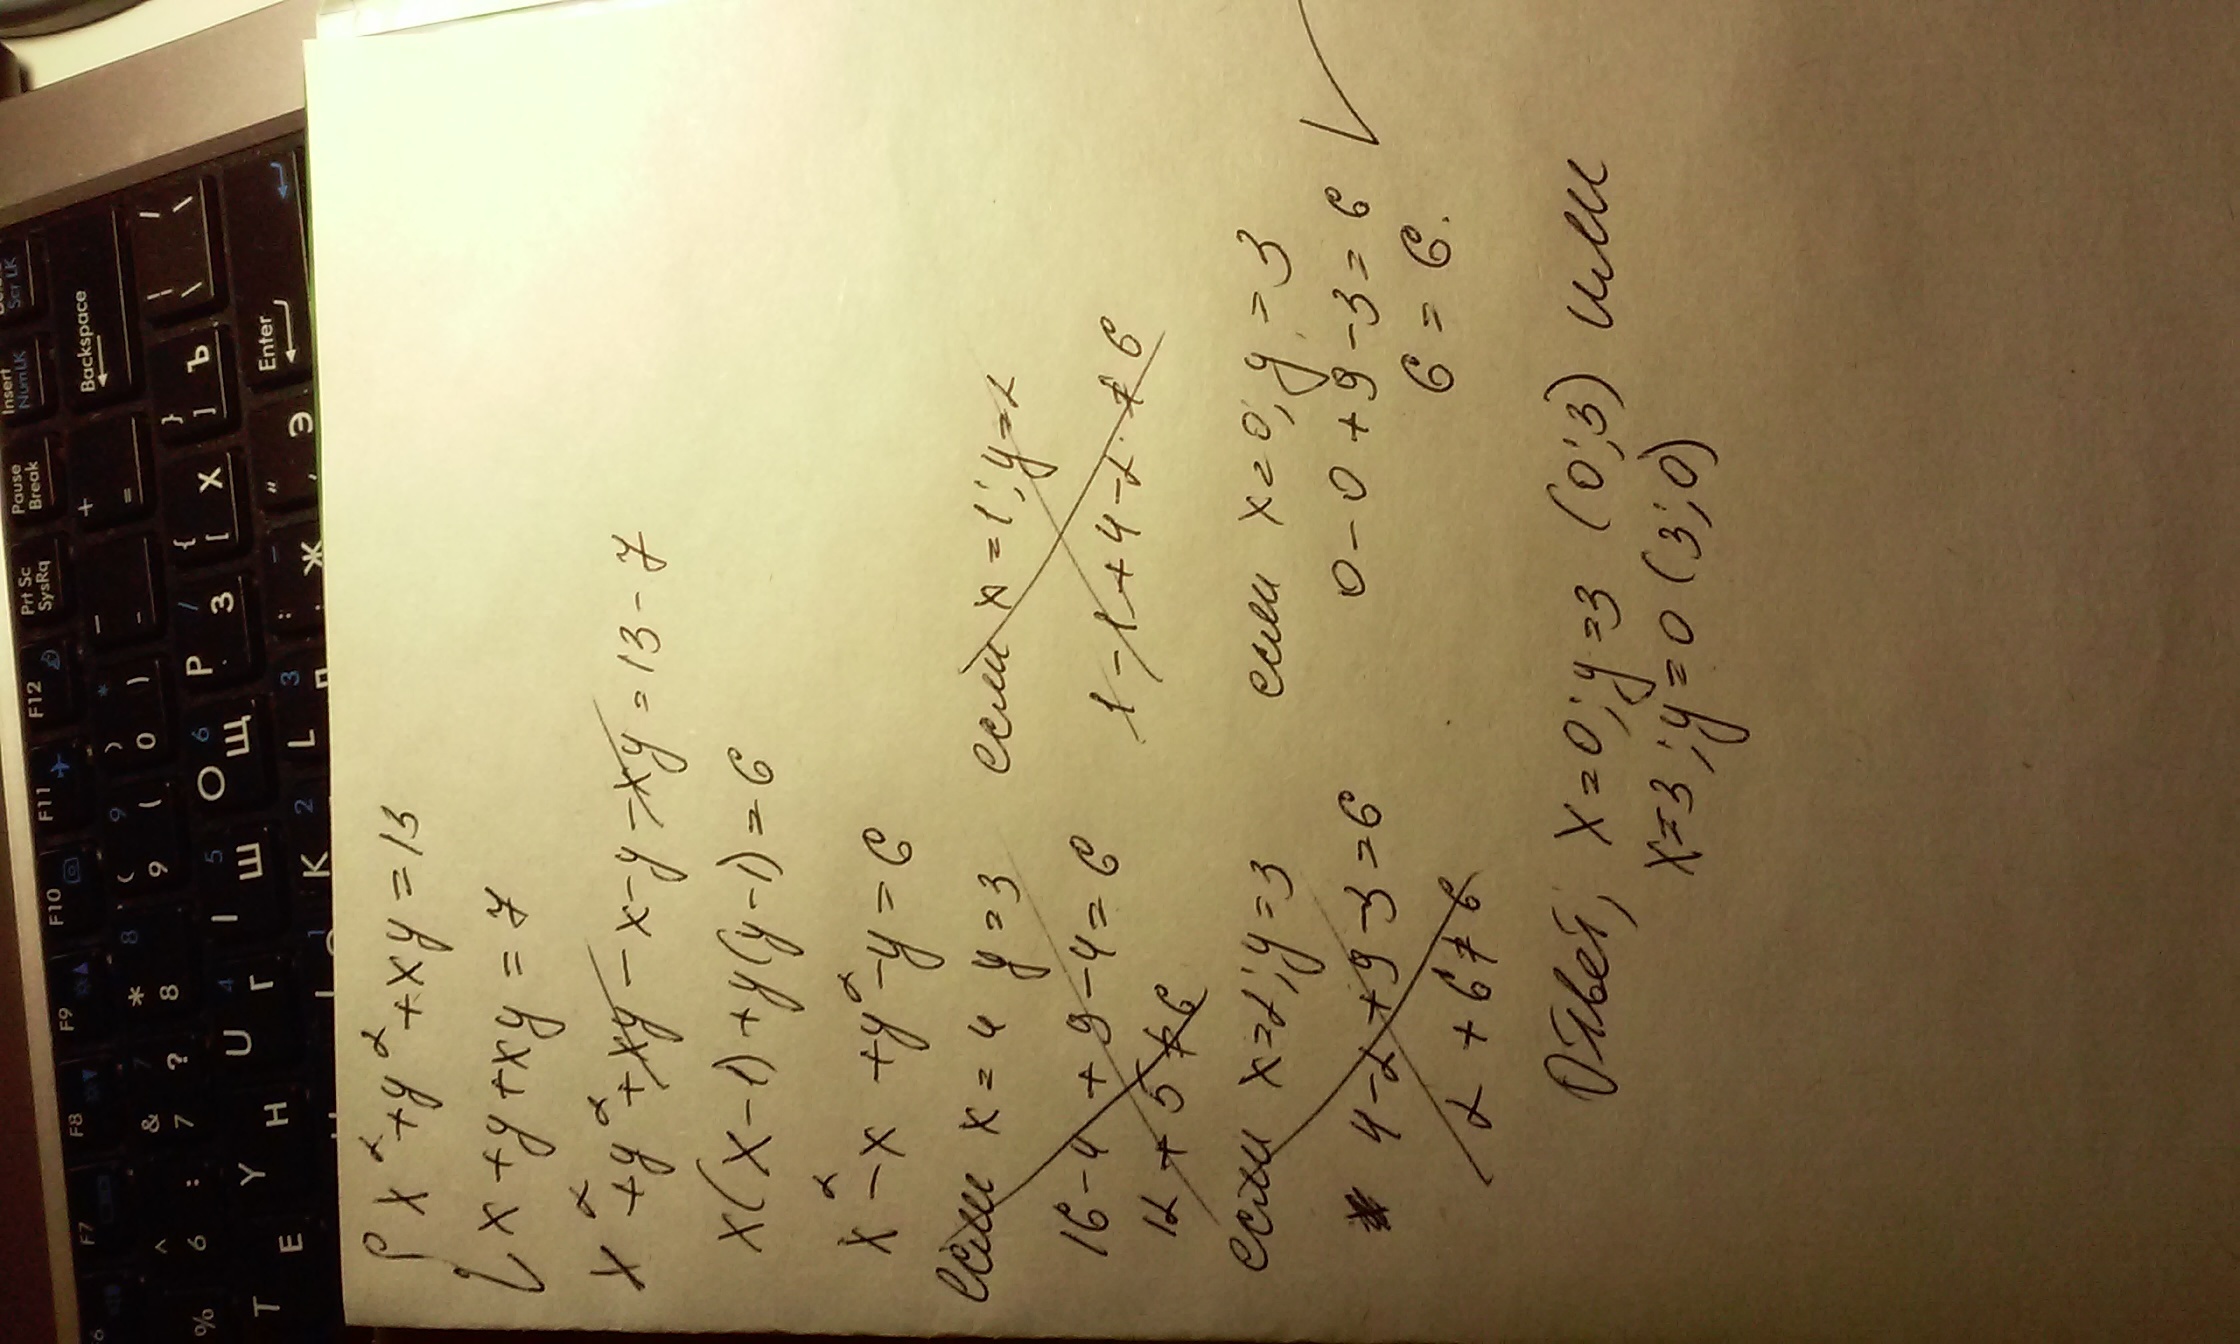 x² + y² + xy = 13
x + y + xy = 7
x² + y² + xy - x - y - xy = 13 - 7
x(x - 1) + y(y - 1) = 6
x² - x + y² - y = 6
если x = 4 y = 3
16 - 4 + 9 - 4 = 6
12 + 5 ≠ 6
если x = 1; y = 2
1 - 1 + 4 - 2 ≠ 6
если x = 2; y = 3
4 - 2 + 9 - 3 = 6
2 + 6 ≠ 6
если x = 0; y = 3
0 - 0 + 9 - 3 = 6
6 = 6.
Ответ; x = 0; y = 3 (0; 3) или
x = 3; y = 0 (3; 0)
Insert
NumLK
Scr LK
Pause
Break
Prt Sc
SysRq
F12
F11
F10
F9
F8
F7
Backspace
Enter
+ =
_ -
) 0
( 9 9
* 8 8
& 7 ? 7
^ 6 :
%
| \ / \
} ] Ъ
{ [ Х
P З
O Щ 6
I Ш 5
U Г 4
Y Н
T Е
" ' Э
: ; Ж
L 3
K 2